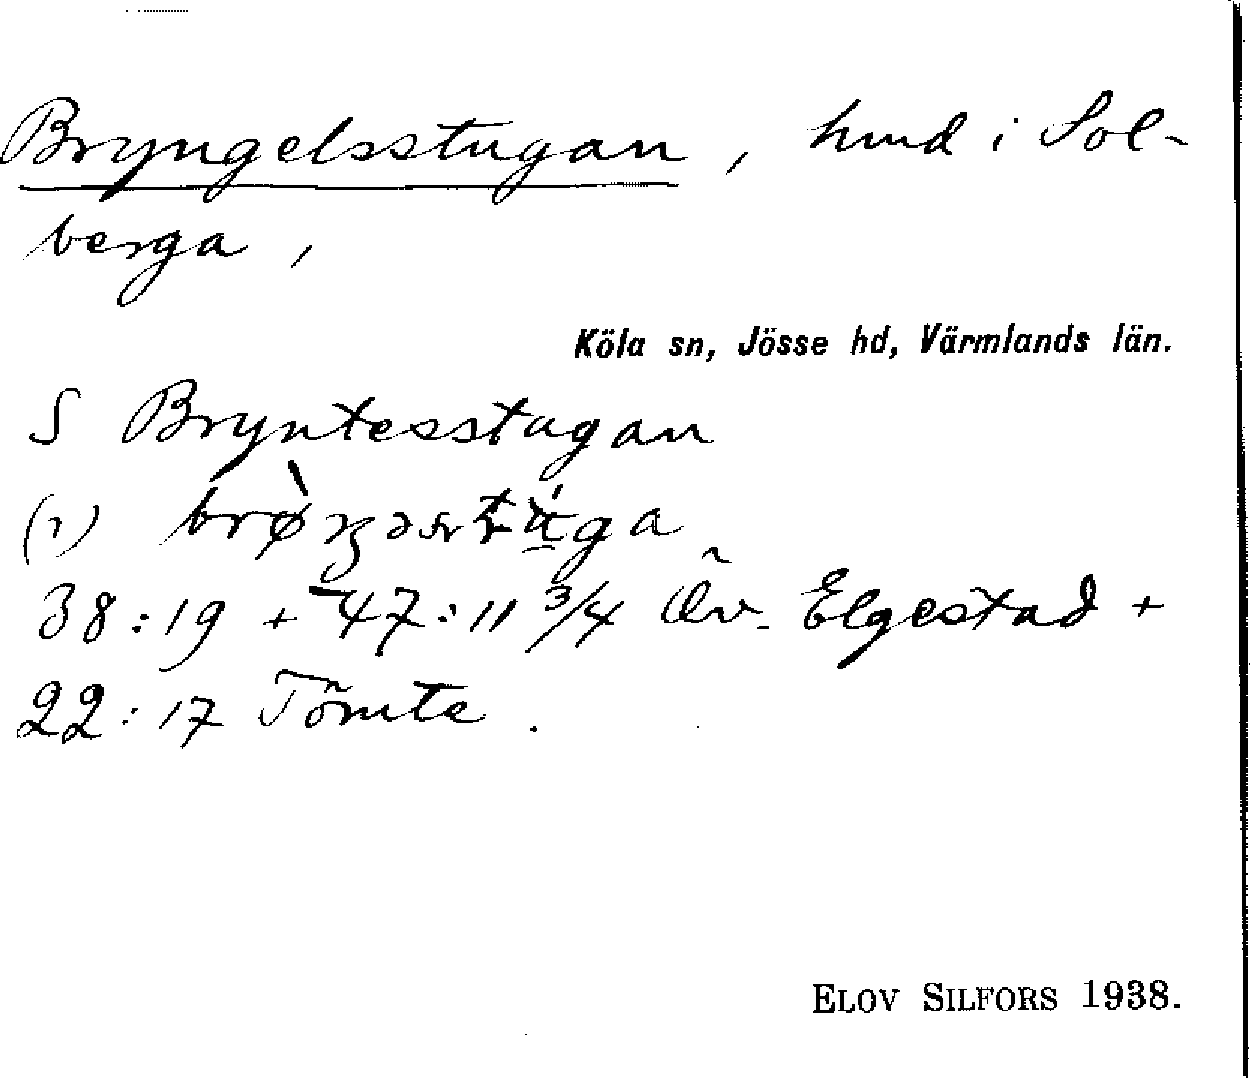 Bryngelsstugan, hmd i Sol-
berga,
Köla sn, Jösse hd, Värmlands län.
S Bryntesstugan
(1)
38:19 + 47:11 3/4 Öv. Elgestad +
22:17 Tömte.
ELOV SILFORS 1938.